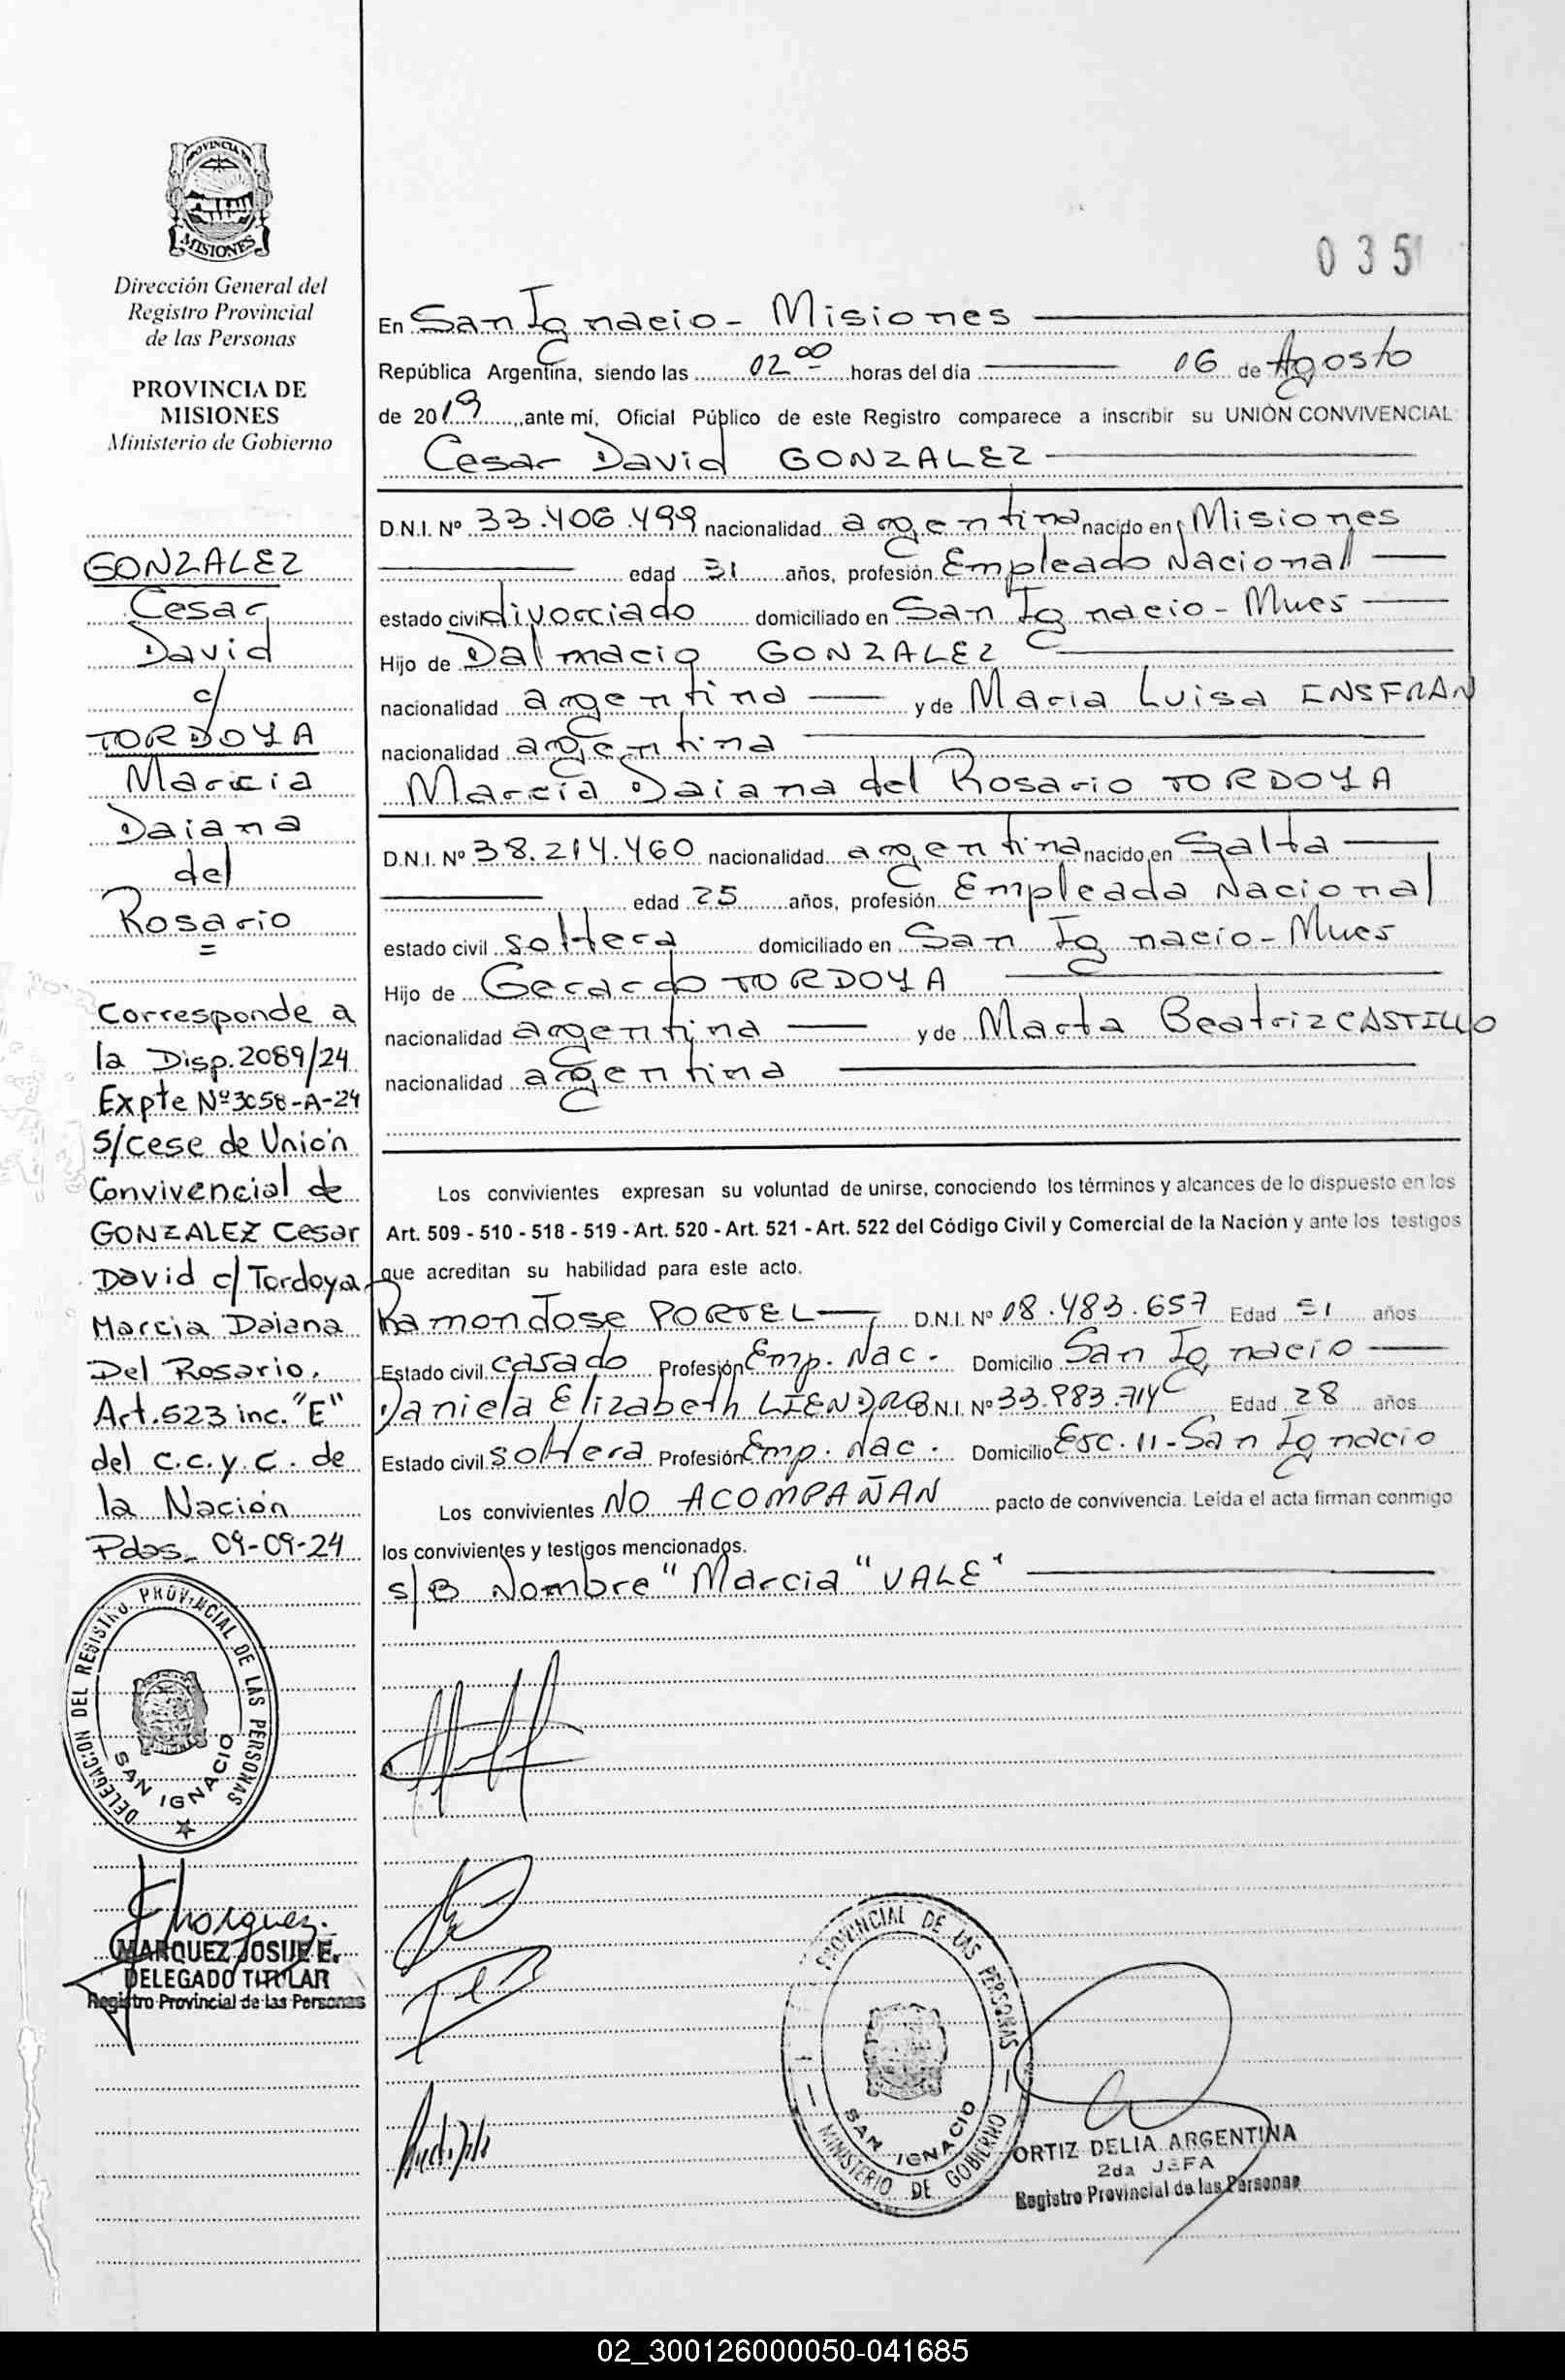 PROVINCIA DE
MISIONES
Dirección General del
Registro Provincial
de las Personas
PROVINCIA DE
MISIONES
Ministerio de Gobierno
GONZALEZ
Cesar
David
c/
TORDOYA
Marcia
Daiana
del
Rosario
=
Corresponde a
la Disp. 2089/24
Expte Nº 3058-A-24
S/cese de Unión
Convivencial de
GONZALEZ Cesar
David c/ Tordoya
Marcia Daiana
Del Rosario.
Art. 523 inc. "E"
del c.c.y.c. de
la Nación
Pdas. 09-09-24
DELEGACION DEL REGISTRO PROVINCIAL DE LAS PERSONAS
SAN IGNACIO
Marquez.
MARQUEZ JOSUE E.
DELEGADO TITULAR
Registro Provincial de las Personas
035
En San Ignacio - Misiones
República Argentina, siendo las 02 00 horas del día 06 de Agosto
de 2019, ante mí, Oficial Público de este Registro comparece a inscribir su UNIÓN CONVIVENCIAL:
Cesar David GONZALEZ
D.N.I. Nº 33.406.499 nacionalidad argentina nacido en Misiones
edad 31 años, profesión Empleado Nacional
estado civil divorciado domiciliado en San Ignacio - Mnes
Hijo de Dalmacio GONZALEZ
nacionalidad argentina y de Maria Luisa ENSFRAN
nacionalidad argentina
Marcia Daiana del Rosario TORDOYA
D.N.I. Nº 38.214.460 nacionalidad argentina nacido en Salta
edad 25 años, profesión Empleada Nacional
estado civil soltera domiciliado en San Ignacio - Mnes
Hijo de Gerardo TORDOYA
nacionalidad argentina y de Marta Beatriz CASTILLO
nacionalidad argentina
Los convivientes expresan su voluntad de unirse, conociendo los términos y alcances de lo dispuesto en los
Art. 509 - 510 - 518 - 519 - Art. 520 - Art. 521 - Art. 522 del Código Civil y Comercial de la Nación y ante los testigos
que acreditan su habilidad para este acto.
Ramon Jose PORTEL D.N.I. Nº 08.483.657 Edad 51 años
Estado civil casado Profesión Emp. Nac. Domicilio San Ignacio
Daniela Elizabeth LIENDRO D.N.I. Nº 33.983.714 Edad 28 años
Estado civil soltera Profesión Emp. Nac. Domicilio Esc. 11 - San Ignacio
Los convivientes NO ACOMPAÑAN pacto de convivencia. Leída el acta firman conmigo
los convivientes y testigos mencionados.
s/B Nombre "Marcia" "VALE"
PROVINCIAL DE LAS PERSONAS
SAN IGNACIO
MINISTERIO DE GOBIERNO
ORTIZ DELIA ARGENTINA
2da JEFA
Registro Provincial de las Personas
02_300126000050-041685